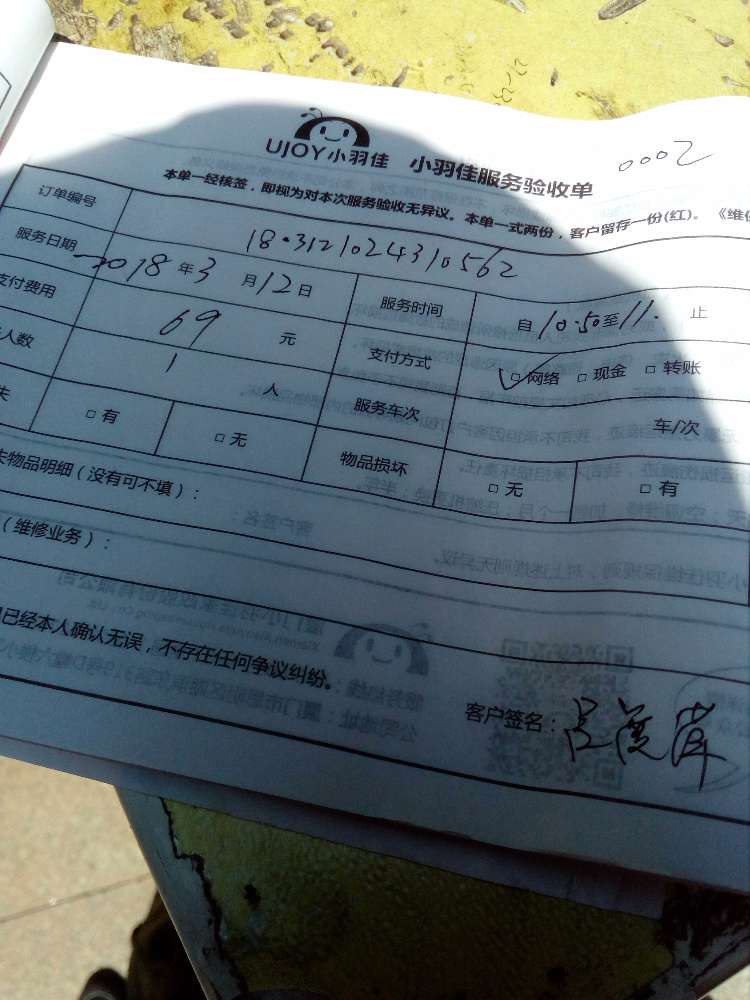 UJOY小羽佳 小羽佳服务验收单 0002
本单一经核签，即视为对本次服务验收无异议。本单一式两份，客户留存一份(红)。《维
订单编号 18.3121024310562
服务日期 2018年3月12日 服务时间 自10.50至11.止
支付费用 69元 支付方式 □网络 □现金 □转账
人数 1人 服务车次 车/次
失 □有 □无 物品损坏 □无 □有
失物品明细（没有可不填）：
（维修业务）：
已经本人确认无误，不存在任何争议纠纷。
客户签名：